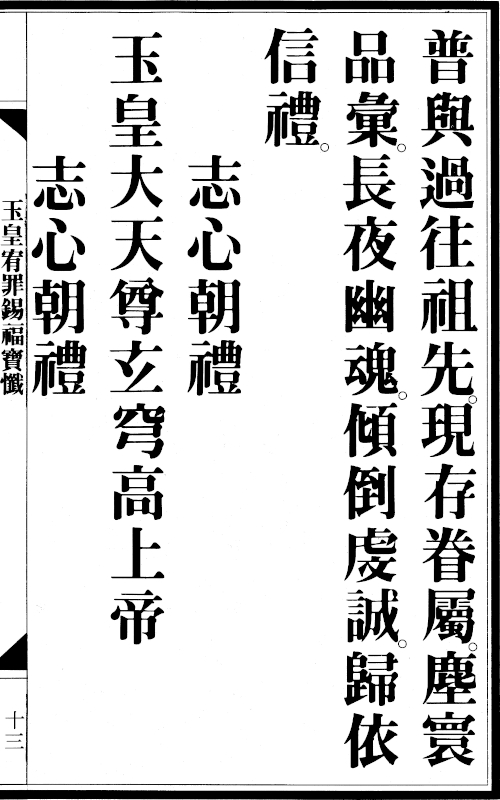 普與過往祖先。現存眷屬。塵寰
品彙。長夜幽魂。傾倒虔誠。歸依
信禮。
志心朝禮
玉皇大天尊玄穹高上帝
志心朝禮
玉皇宥罪錫福寶懺
十三